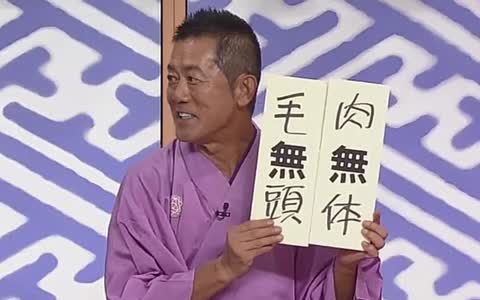 肉無体
毛無頭